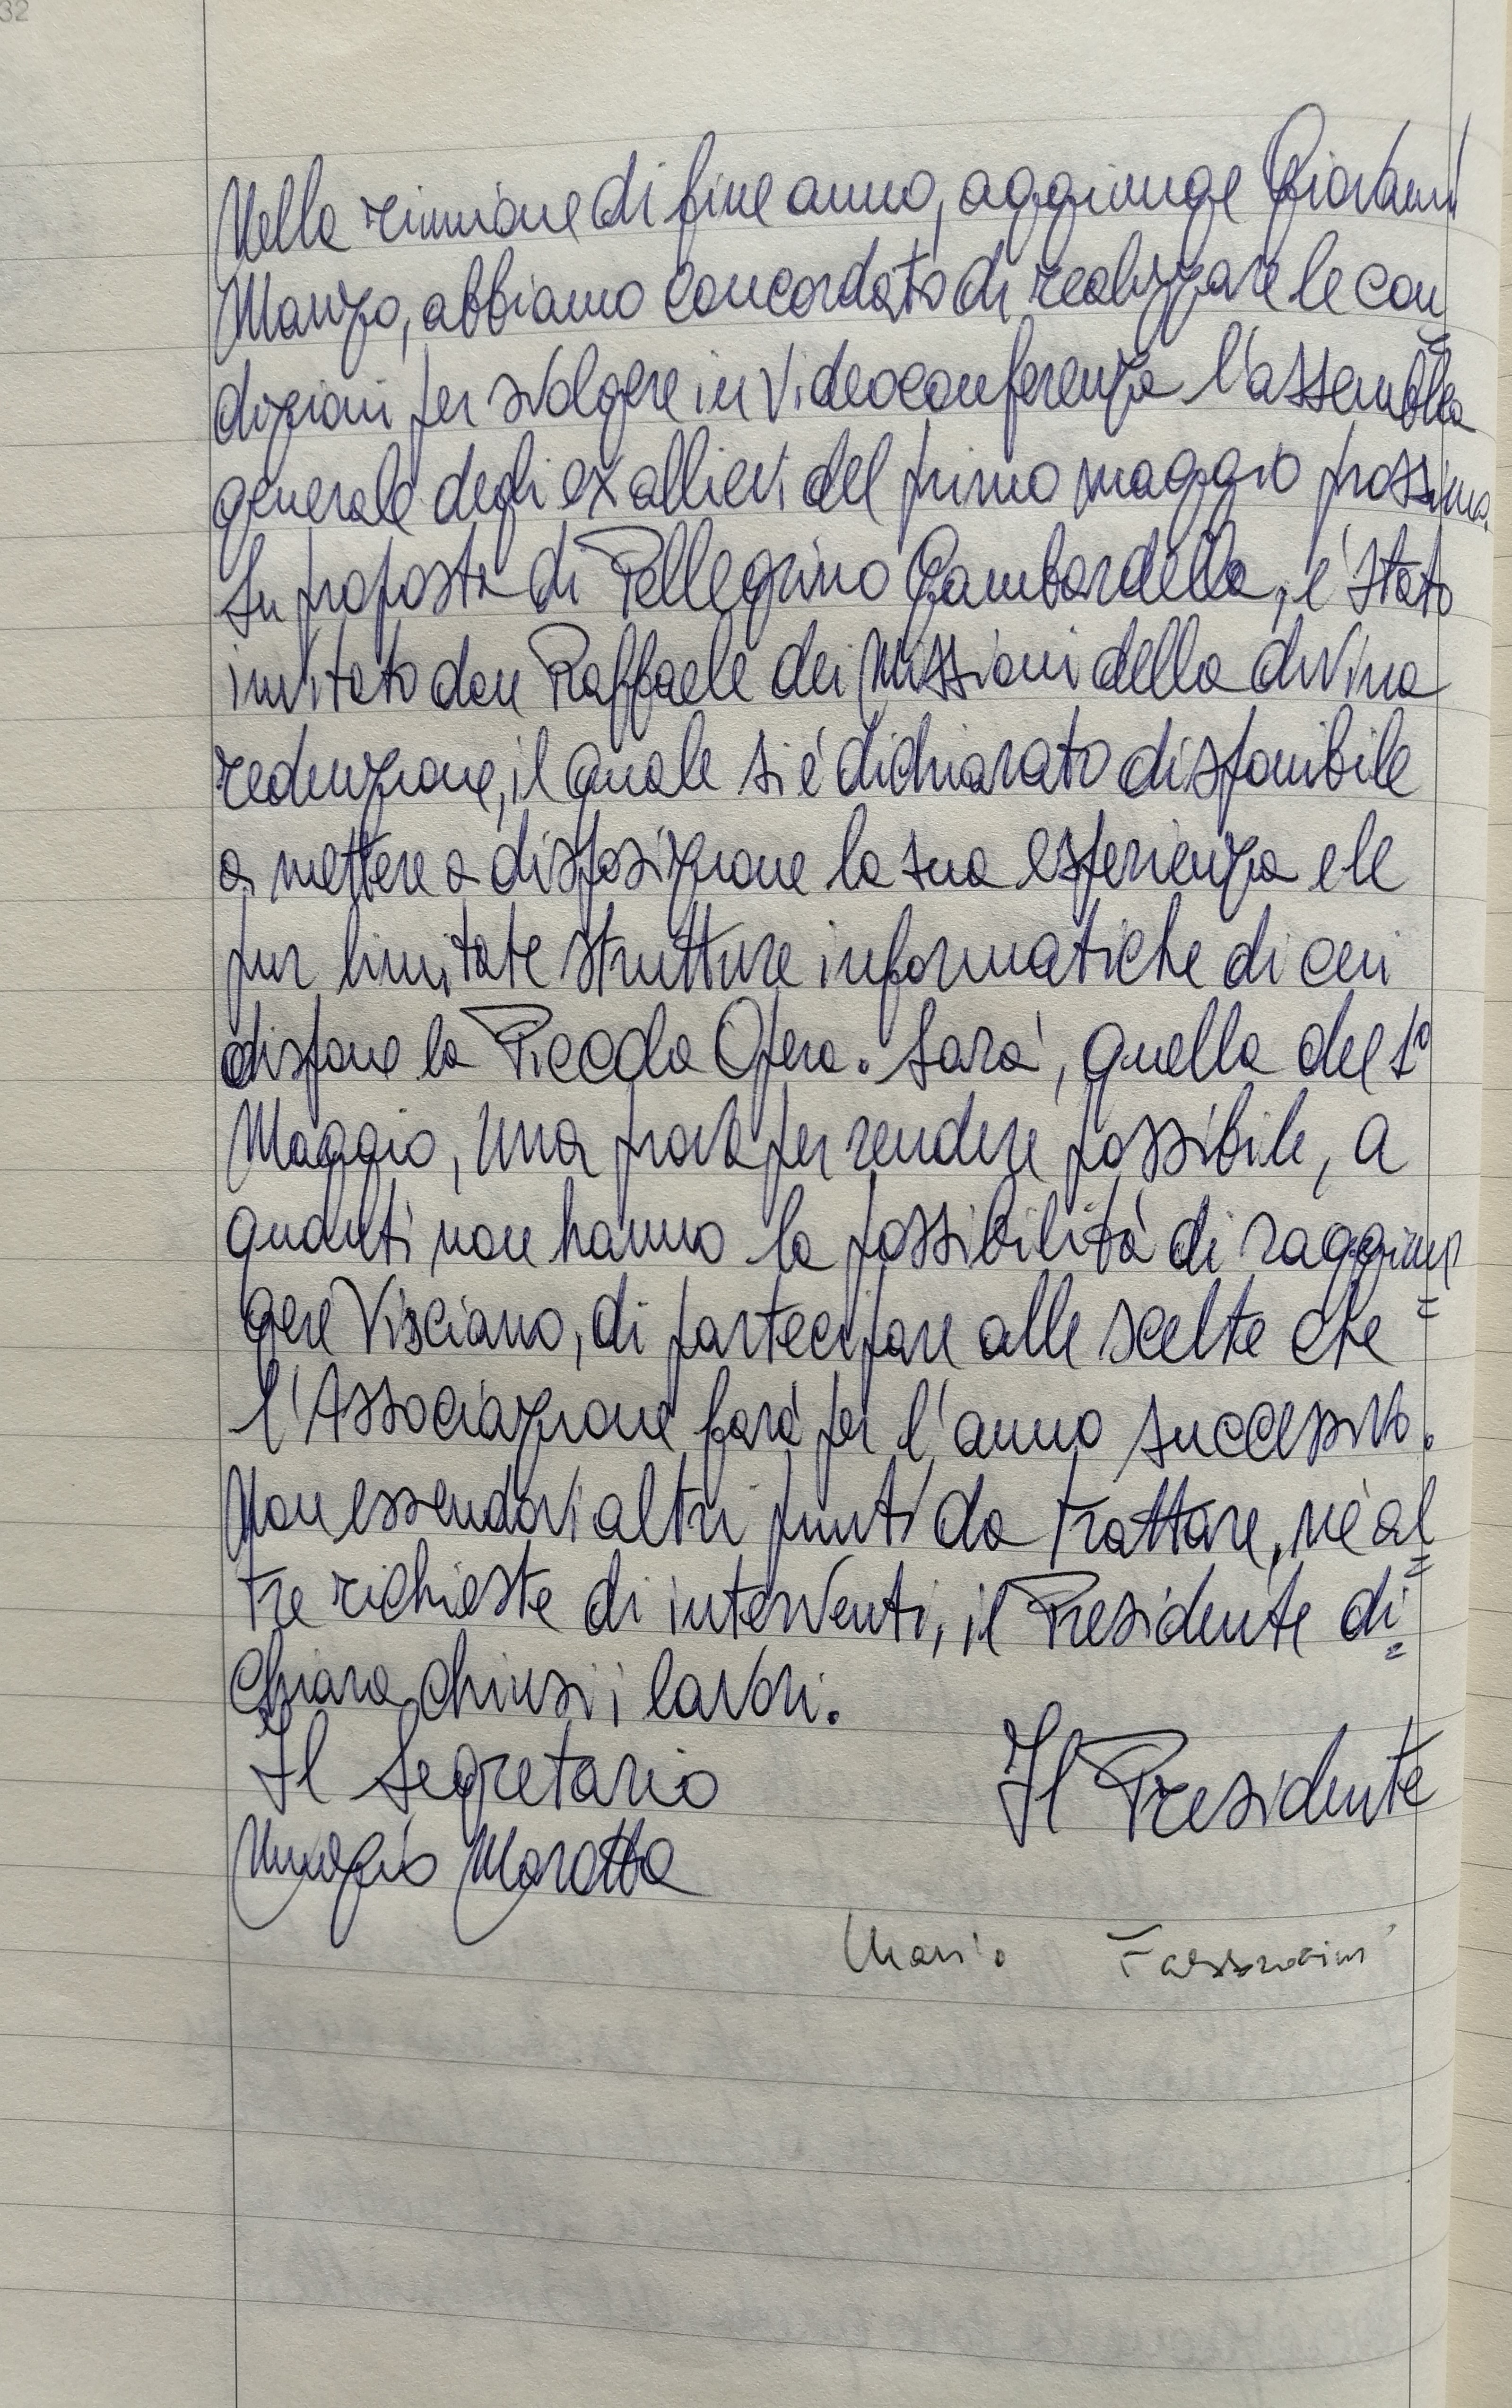 32
Nella riunione di fine anno, aggiunge Giovanni
Manzo, abbiamo concordato di realizzare le con=
dizioni per svolgere in videoconferenza l'assemblea
generale degli ex allievi del primo maggio prossimo.
Su proposta di Pellegrino Gambardella, è stato
invitato don Raffaele dei Missioni della divina
redenzione, il quale si è dichiarato disponibile
a mettere a disposizione la sua esperienza e le
pur limitate strutture informatiche di cui
dispone la Piccola Opera. Sarà, quella del 1°
Maggio, una prova per rendere possibile, a
quanti non hanno la possibilità di raggiun=
gere Visciano, di partecipare alle scelte che
l'Associazione farà per l'anno successivo.
Non essendovi altri punti da trattare, nè al=
tre richieste di interventi, il Presidente di=
chiara chiusi i lavori.
Il Segretario Il Presidente
Nunzio Marotta
Mario